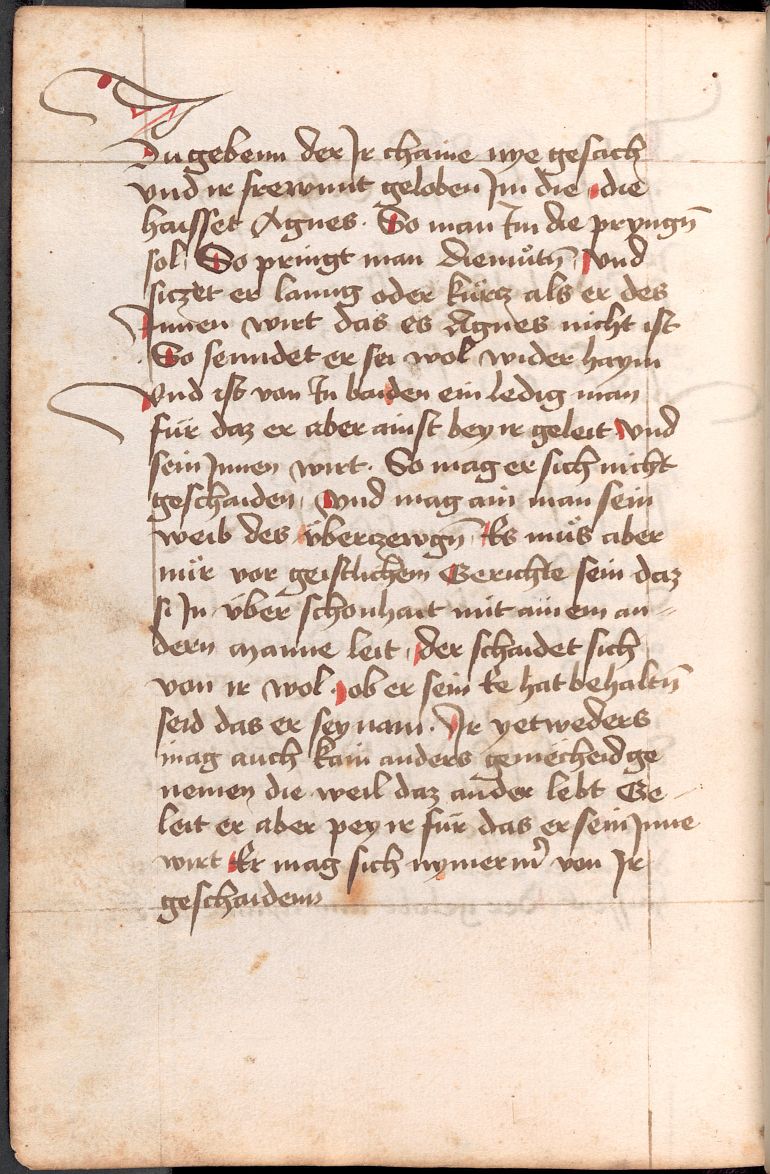 Zu gebenn der Jr chaine nye gesach
vnd ir frewnnt geloben Jm die die
haisset Agnes. So man Im die pryngn̄
sol So pringt man diemůtn̄ Vnd
siczet er lanng oder kürcz als er des
Jnnen wirt das es Agnes nicht ist
So senndet er sei wol wider haym
Vnd ist von In baiden ein ledig man
für daz er aber ainst bey ir geleit Vnd
sein Jnnen wirt. So mag er sich nicht
geschaiden Vnd mag ain man sein
weib des überczewgn̄ Es müs aber
nür vor geistlichem Gerichte sein daz
si Jn über schonhait mit ainem an=
dern manne leit der schaidet sich
von ir wol ob er sein Ee hat behaltn̄
seid das er sey nam. Jr yetweders
mag auch kain anders gemecheid ge
nemen die weil daz ander lebt Ge-
leit er aber pey ir für das er sein Jnne
wirt Er mag sich nymerm̄ von Jr
geschaidenn